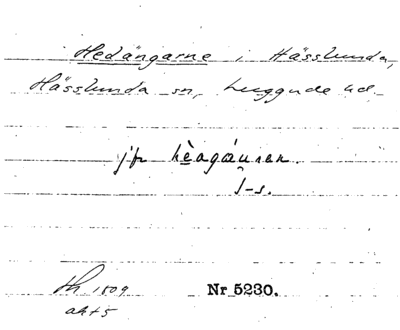 Hedängarne i Hässlunda,
Hässlunda sn, Luggude hd.
jfr hèagáunen.
J-s.
1809 Nr 5230.
akt 5